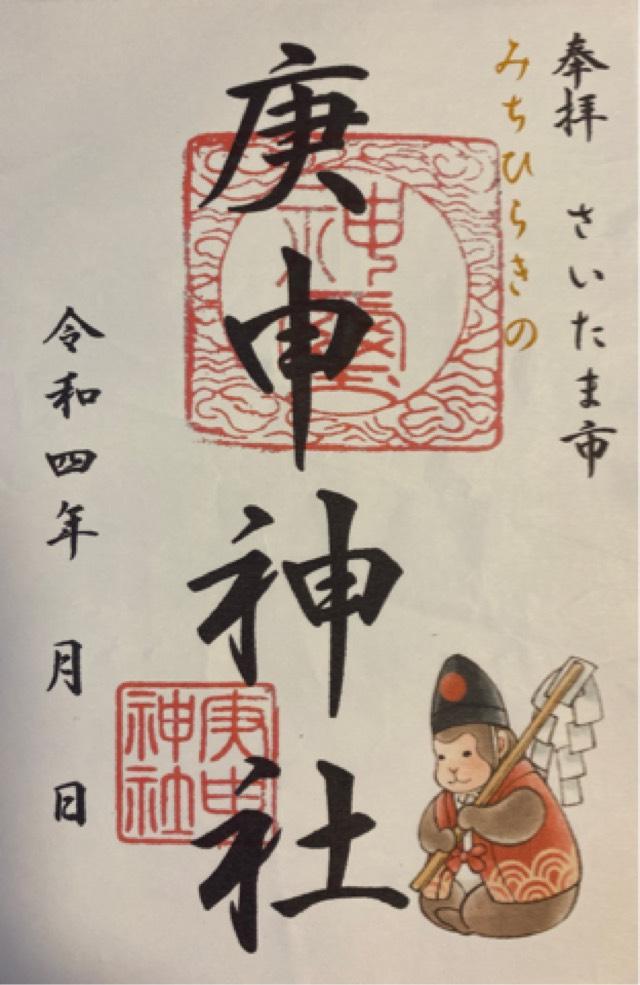 奉拝　さいたま市
みちひらきの
庚申神社
神璽
庚申神社
令和四年　月　日